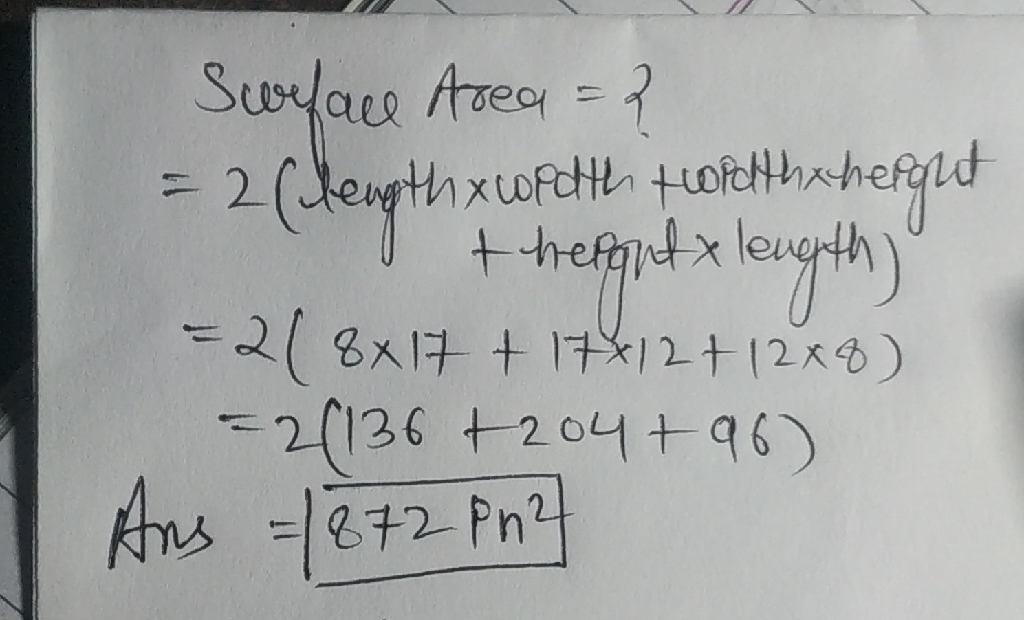 Surface Area = ?
= 2(length x width + width x height
+ height x length)
= 2( 8x17 + 17x12 + 12x8)
= 2(136 + 204 + 96)
Ans = 872 in²